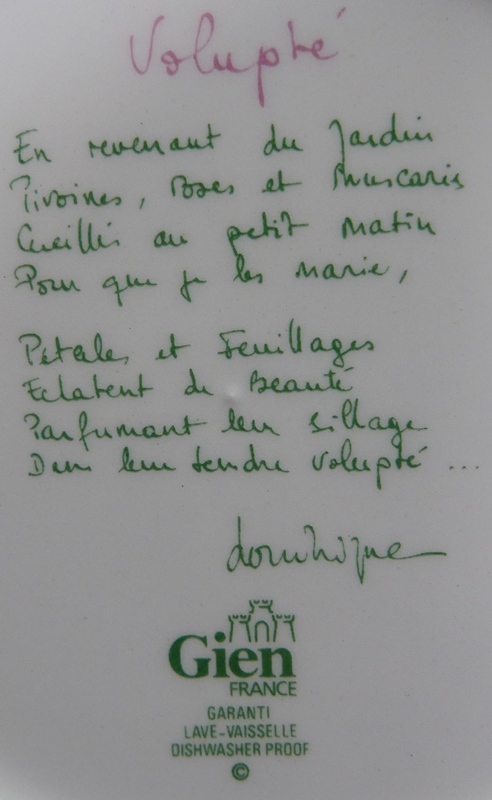 Volupté
En revenant du Jardin
Pivoines, Roses et Muscaris
Cueillis au petit matin
Pour que je les marie,
Pétales et Feuillages
Eclatent de Beauté
Parfumant leur sillage
Dans leur tendre Volupté ...
dominique
Gien
FRANCE
GARANTI
LAVE-VAISSELLE
DISHWASHER PROOF
©